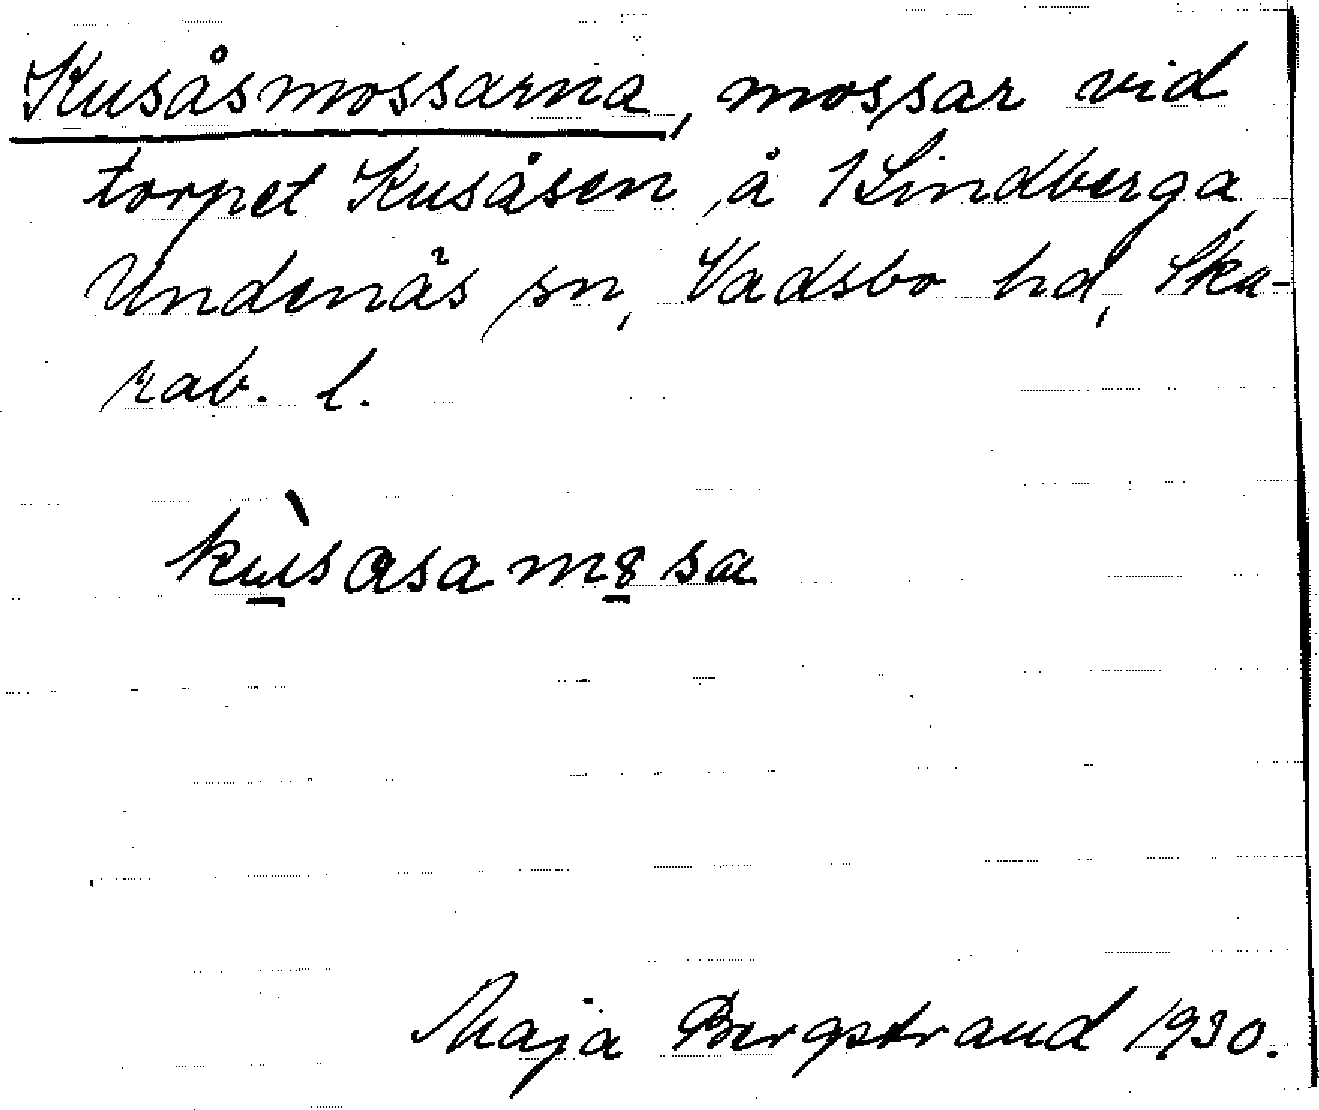 Kusåsmossarna, mossar vid
torpet Kusåsen, å 1 Lindberga,
Undenäs sn, Vadsbo hd, Ska-
rab. l.
kùsasamȣsa
Maja Bergstrand 1930.